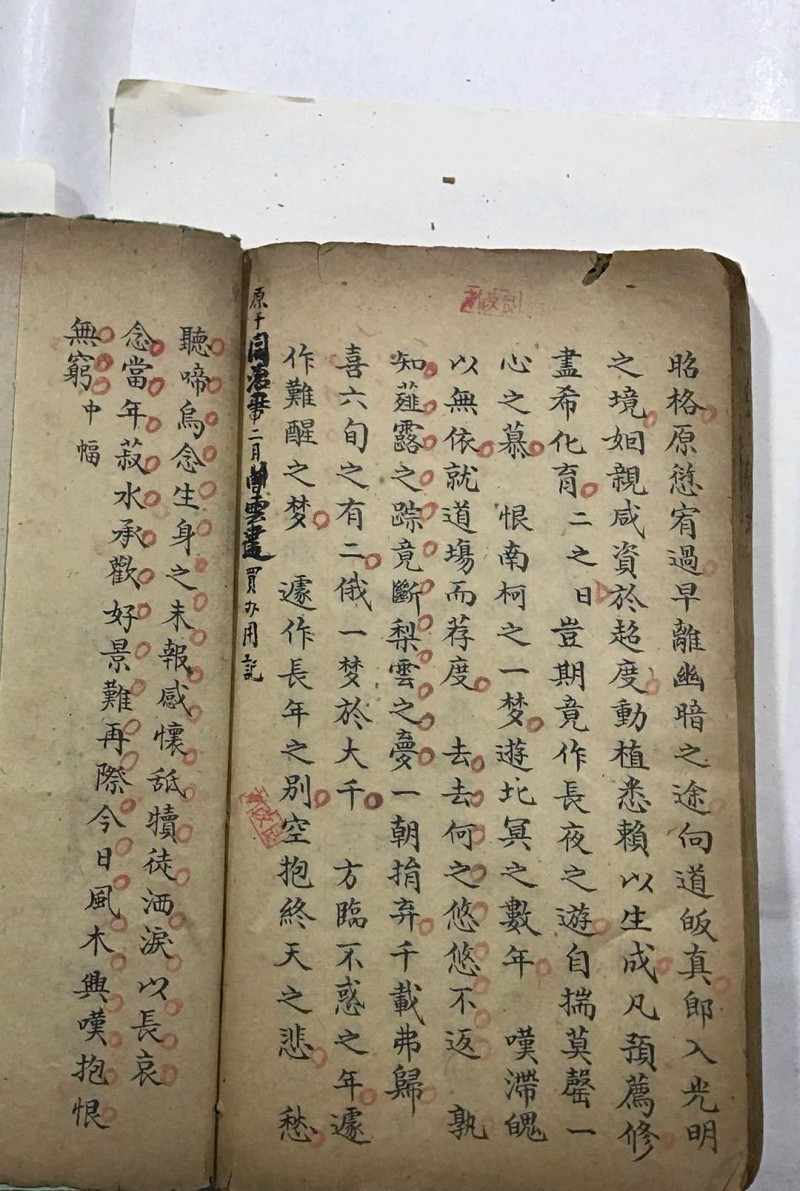 昭格原愆宥過早離幽暗之途向道皈真郎入光明
之境如親咸資於超度動植悉賴以生成凡預薦修
盡希化育二之日豈期竟作長夜之遊自揣莫罄一
心之慕 恨南柯之一梦遊北冥之數年 嘆滯魄
以無依就道塲而荐度 去去何之悠悠不返 孰
知薤露之踪竟斷梨雲之憂一朝捐弃千載弗歸
喜六旬之有二俄一梦於大千 方臨不惑之年遽
作難醒之梦 遽作長年之別空抱終天之悲 愁
原于年二月雲畫買办用記
聽啼烏念生身之未報感懷舐犢徒洒淚以長哀
念當年菽水承歡好景難再際今日風木興嘆抱恨
無窮中幅